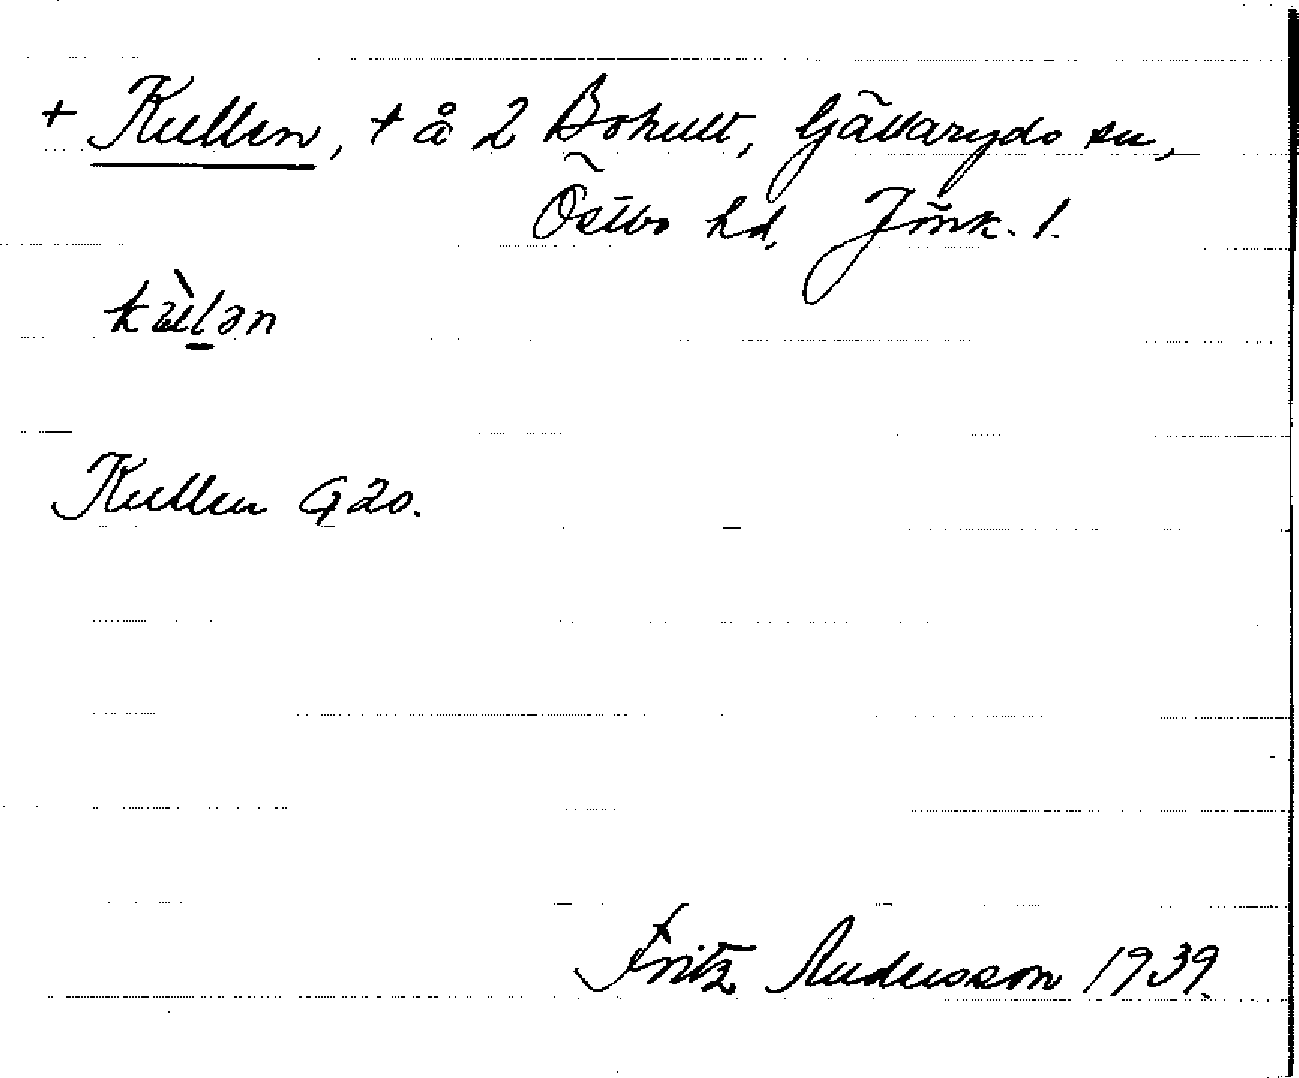 + Kullen, + å 2 Bohult, Gällaryds sn,
Östbo hd, Jönk. l.
kùlən
Kullen G20.
Fritz Andersson 1939.